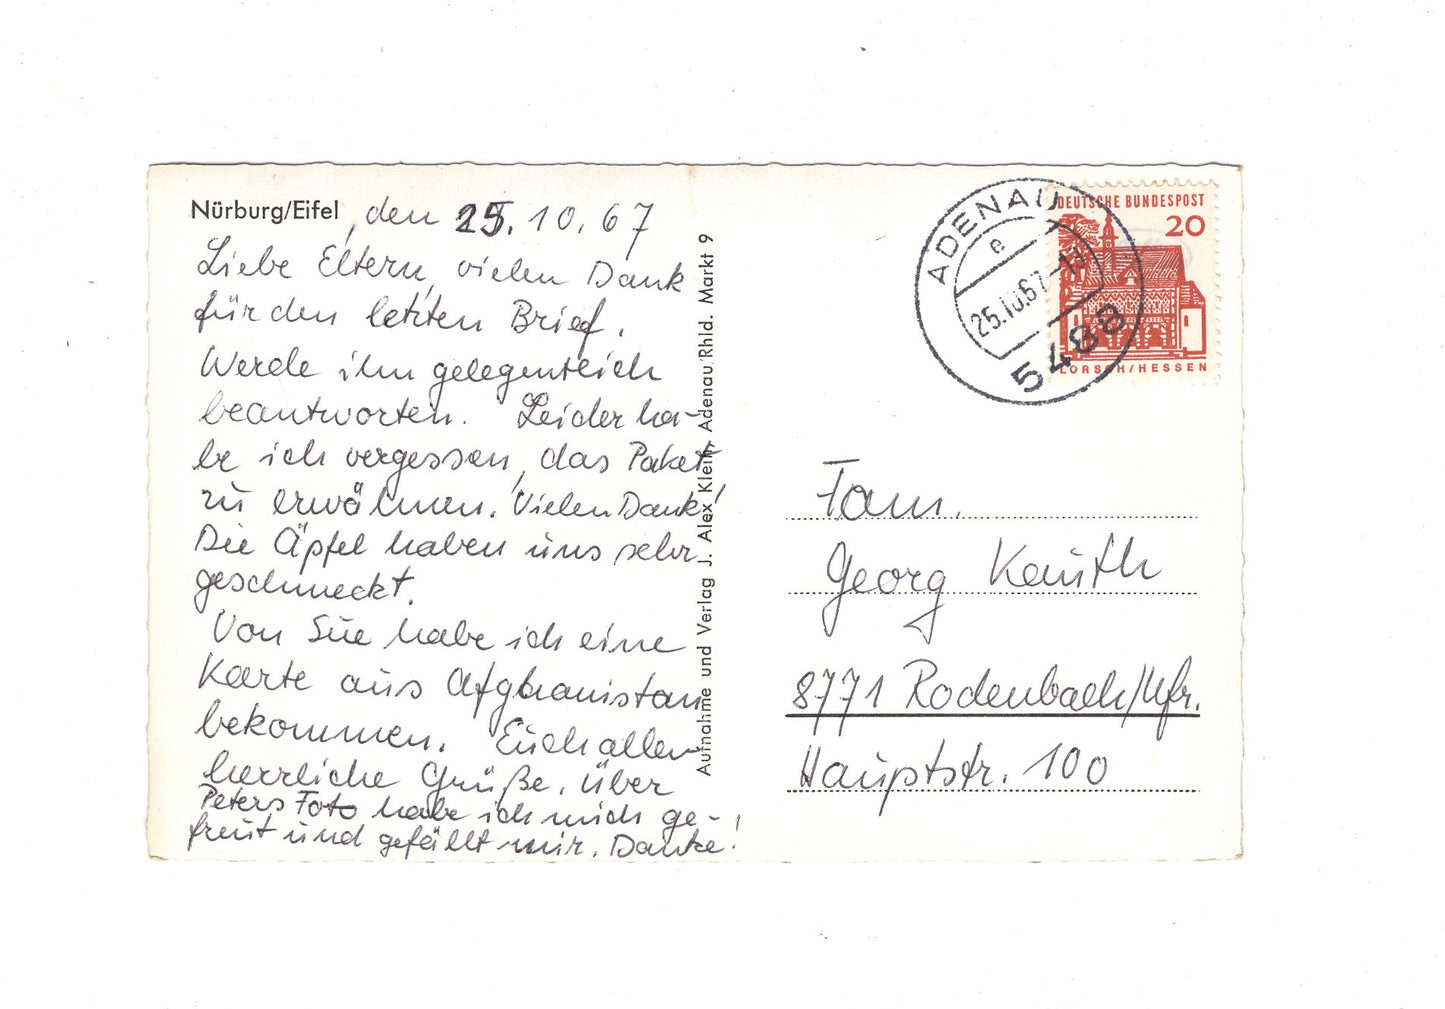 Nürburg/Eifel, den 25.10.67
Liebe Eltern, vielen Dank
für den letzten Brief.
Werde ihn gelegentlich
beantworten. Leider ha-
be ich vergessen, das Paket
zu erwähnen. Vielen Dank!
Die Äpfel haben uns sehr
geschmeckt.
Von Sue habe ich eine
Karte aus Afghanistan
bekommen. Euch allen
herrliche Grüße. Über
Peters Foto habe ich mich ge-
freut und gefällt mir. Danke!
Aufnahme und Verlag J. Alex Klein, Adenau/Rhld. Markt 9
ADENAU
e
25.10.67-13
5488
DEUTSCHE BUNDESPOST
20
LORSCH/HESSEN
Fam.
Georg Kauth
8771 Rodenbach/Ufr.
Hauptstr. 100